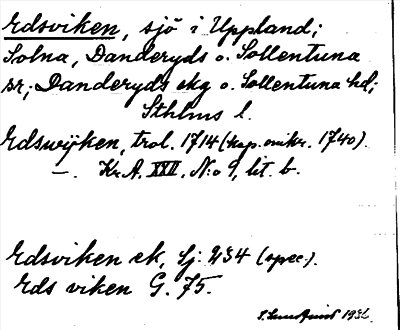 Edsviken, sjö i Uppland;
Solna, Danderyds o. Sollentuna
sr; Danderyds skg o. Sollentuna hd;
Sthlms l.
Edswijken, trol. 1714 (kop. omkr. 1740).
—. Kr.A. XXII, N:o 9, lit. b.
Edsviken ek, Lj. 234 (spec.).
Eds viken G. 75.
1932